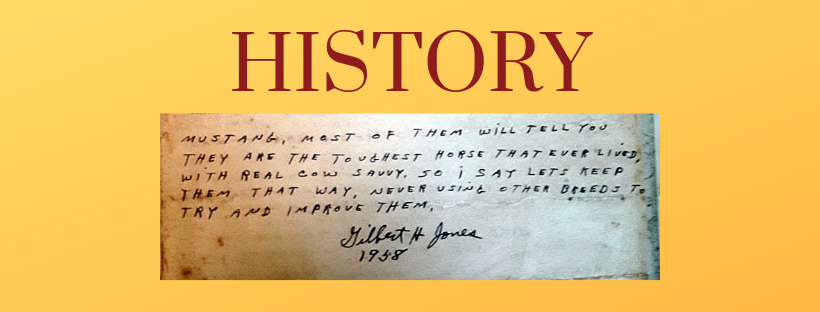 HISTORY
MUSTANG, MOST OF THEM WILL TELL YOU
THEY ARE THE TOUGHEST HORSE THAT EVER LIVED,
WITH REAL COW SAVVY. SO I SAY LETS KEEP
THEM THAT WAY, NEVER USING OTHER BREEDS TO
TRY AND IMPROVE THEM.
Gilbert H Jones
1958